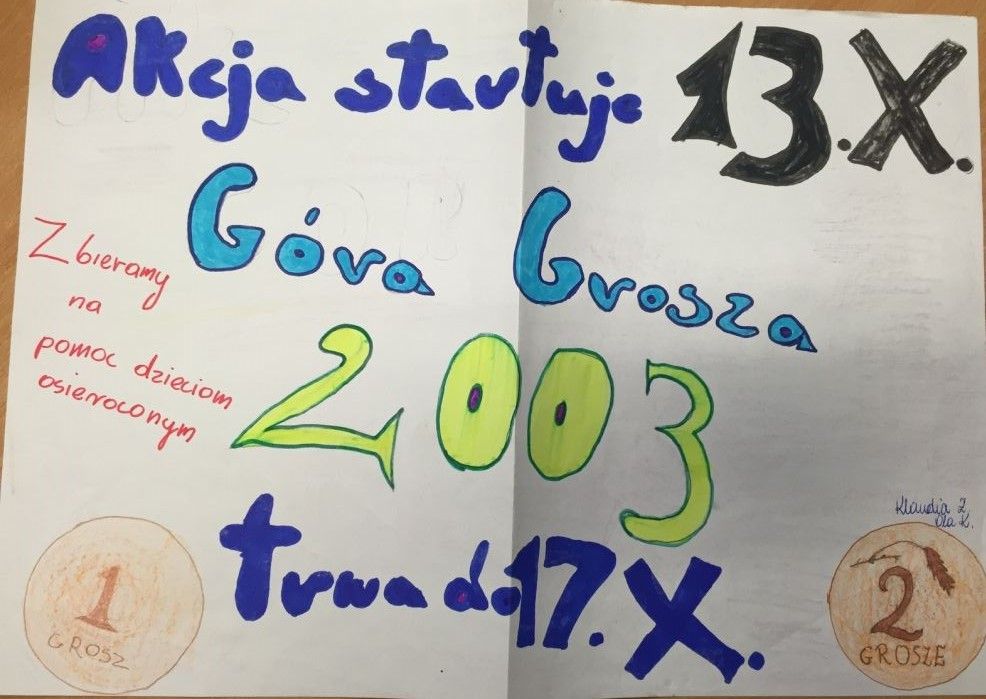 Akcja startuje 13.X.
Góra Grosza
Zbieramy
na
pomoc dzieciom
osieroconym
2003
trwa do 17.X.
Klaudia Z.
Ola K.
1
GROSZ
2
GROSZE